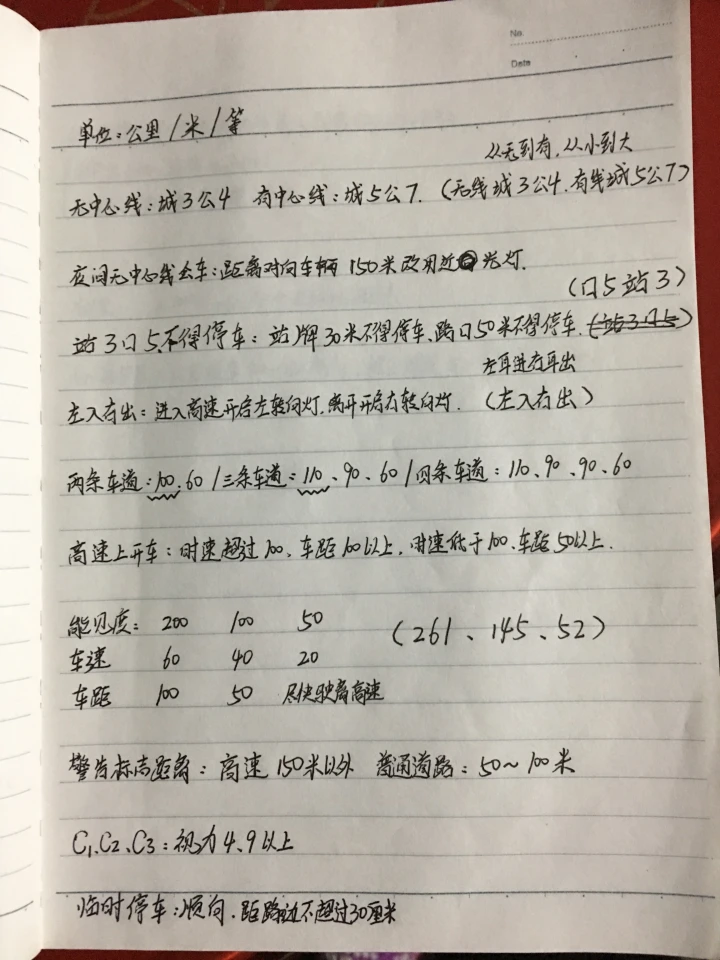 No.
Date
单位:公里/米/等
从无到有,从小到大
无中心线:城3公4 有中心线:城5公7.(无线城3公4.有线城5公7)
夜间无中心线会车:距离对向车辆150米改用近光灯.
(口5站3)
站3口5不得停车:站牌30米不得停车、路口50米不得停车.(站3口5)
左耳进右耳出
左入右出:进入高速开启左转向灯.离开开启右转向灯.(左入右出)
两条车道:100、60/三条车道:110、90、60/四条车道:110、90、90、60
高速上开车:时速超过100、车距100以上,时速低于100、车距50以上.
能见度: 200 100 50 (261、145、52)
车速 60 40 20
车距 100 50 尽快驶离高速
警告标志距离:高速150米以外 普通道路:50~100米
C1、C2、C3:视力4.9以上
临时停车:顺向.距路边不超过30厘米